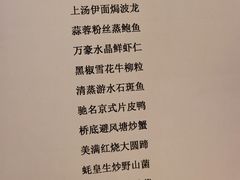 上汤伊面焗波龙
蒜蓉粉丝蒸鲍鱼
万豪水晶鲜虾仁
黑椒雪花牛柳粒
清蒸游水石斑鱼
驰名京式片皮鸭
桥底避风塘炒蟹
美满红烧大圆蹄
蚝皇生炒野山菌